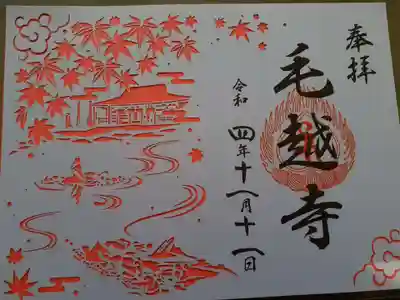 奉拝
毛越寺
令和四年十一月十一日